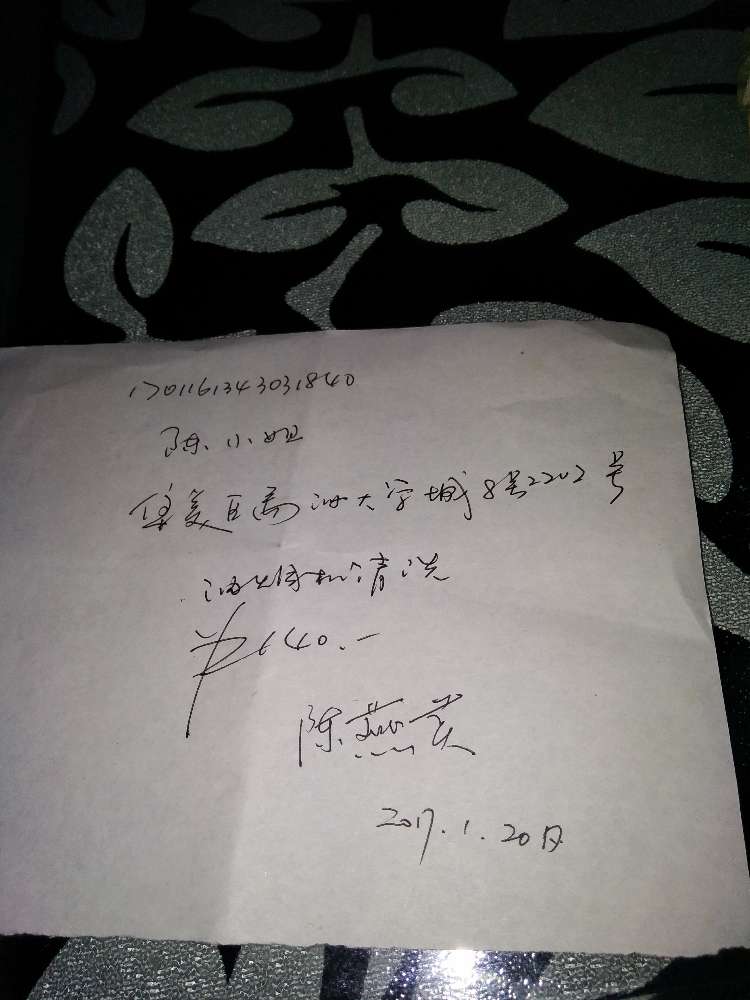 1701161343031840
陈小姐
集美区乌石油大学城8号2202号
油烟机清洗
¥140.-
陈燕英
2017.1.20日